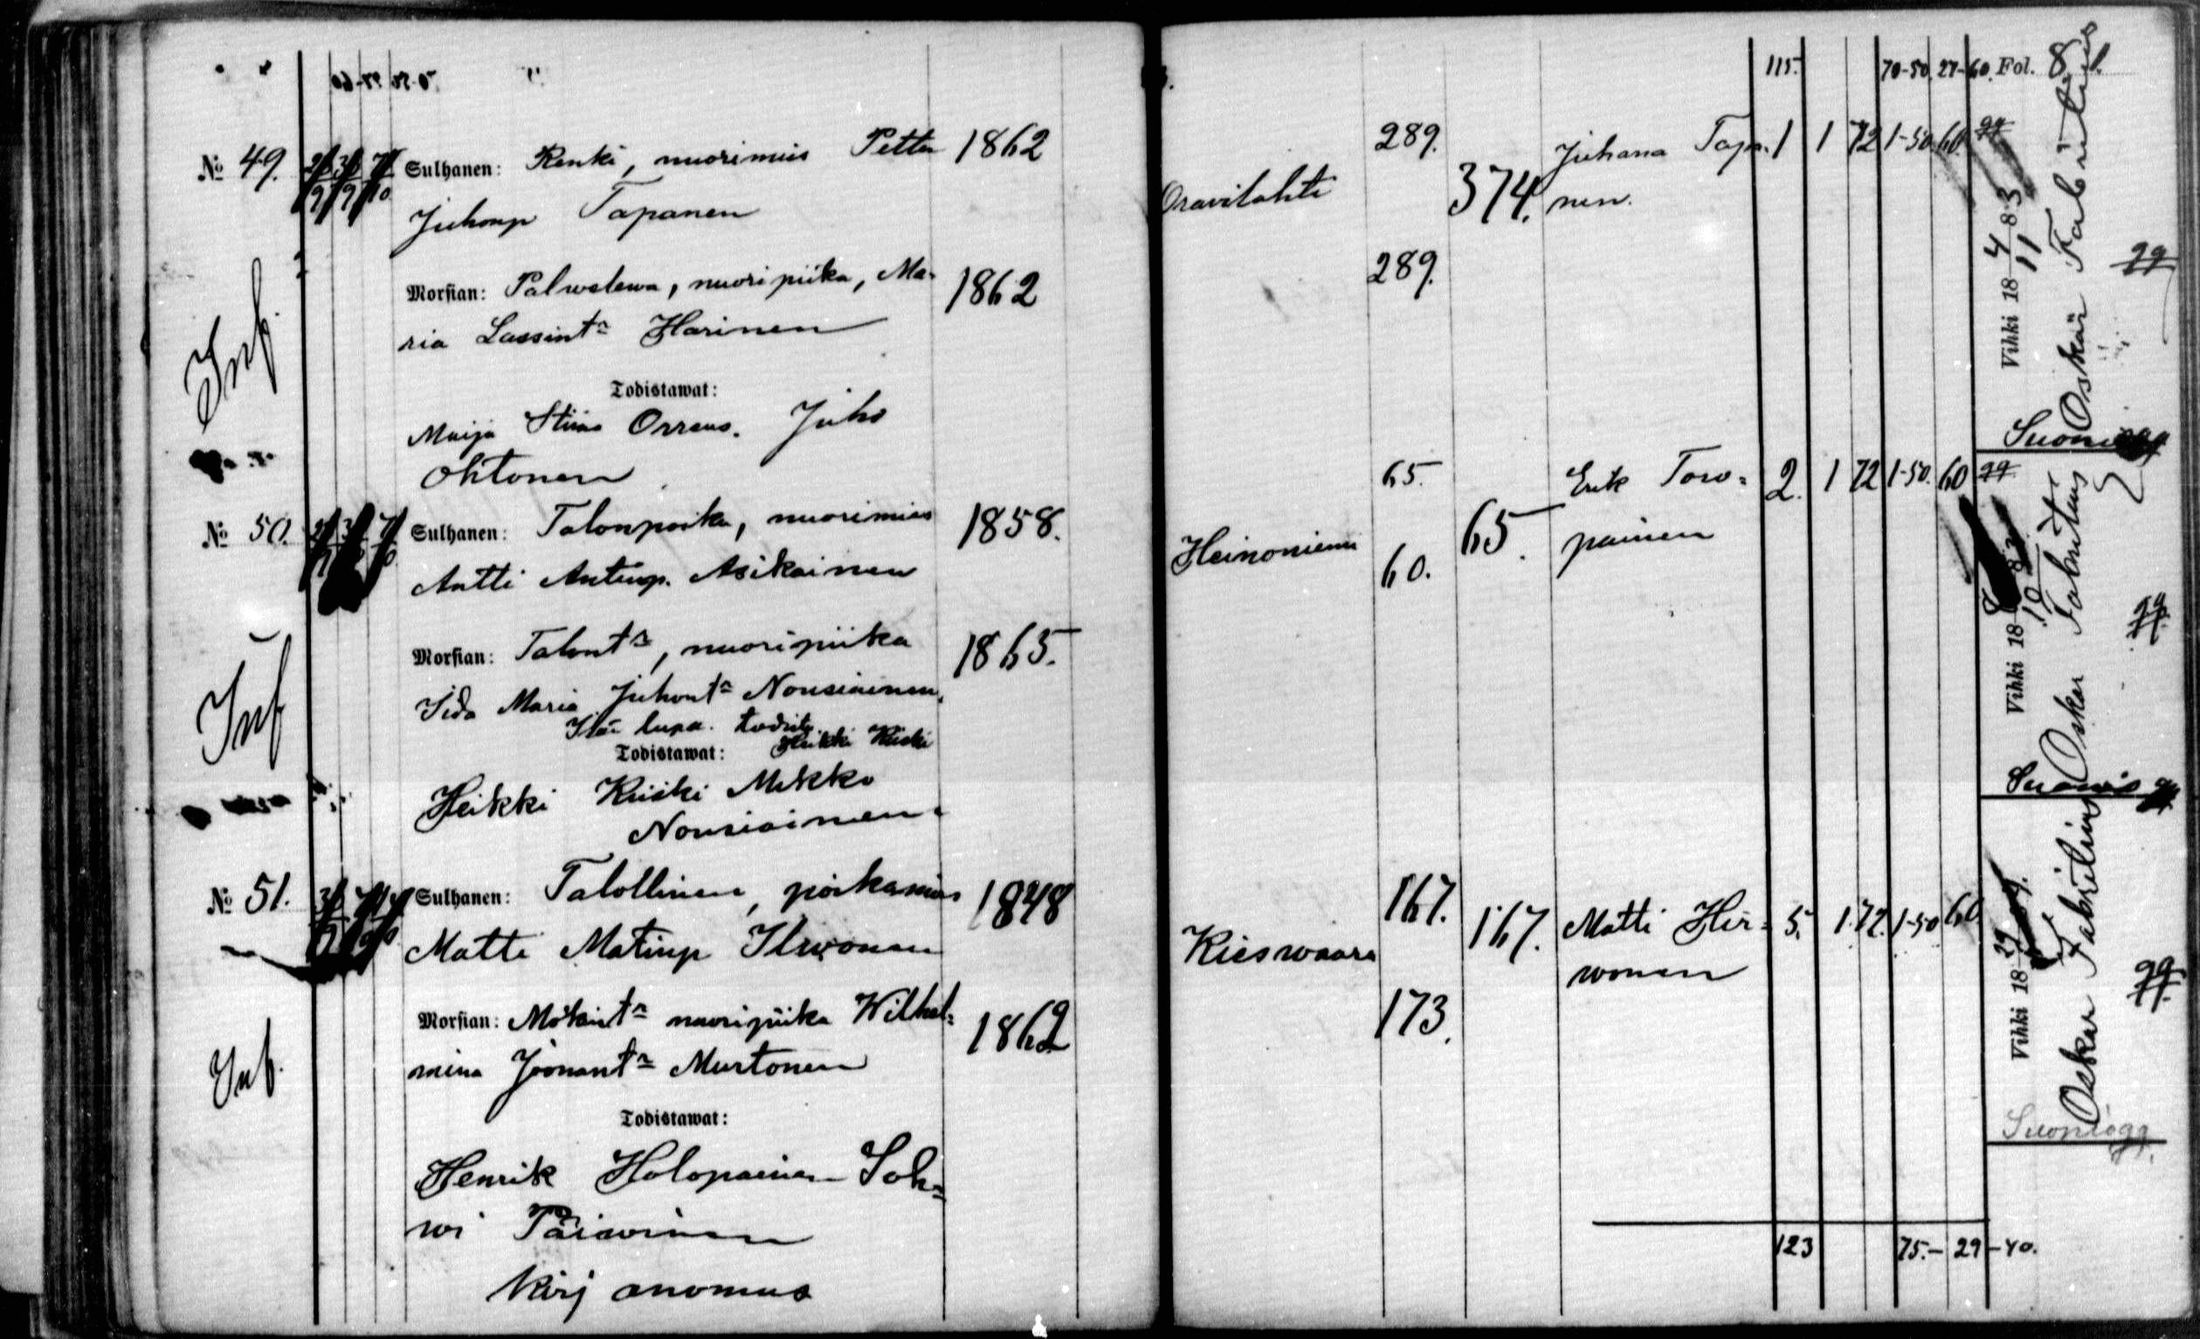 115. 70-50. 27-60. Fol. 81.
№ 49. Sulhanen: Renki, nuorimies Petter 1862
Juhonp Tapanen
Morsian: Palwelewa, nuoripiika, Ma-
ria Lassint:r Harinen 1862
Todistawat:
Maija Stiina Orreus. Juho
Ohtonen
Inf.
Oravilahti 289. 374. Juhana Tapa-
nen. 1 1 72 1-50. 60.
289.
Vihki 18 4/11 83
Oskar Fabritius
№ 50. Sulhanen: Talonpoika, nuorimies 1858.
Antti Antinp. Asikainen
Morsian: Talont:r, nuoripiika 1865.
Iida Maria Juhont:r Nousiainen.
Isän lupa. todist.
Heikki Kiiski
Todistawat:
Heikki Kiiski Mikko
Nousiainen.
Inf
Heinoniemi 65. 60. 65. Erik Torw-
painen 2. 1 72 1-50. 60
Vihki 18
Oskar Fabritius
№ 51. Sulhanen: Talollinen, poikamies 1848
Matti Matinp Hirwonen
Morsian: Mökint:r nuoripiika Wilhel-
mina Joonant:r Murtonen 1862
Todistawat:
Henrik Holopainen Soh-
wi Päiwinen
Kirj anomus
Inf.
Kieswaara 167. 167. Matti Hir-
wonen 5. 1. 72. 1-50 60
173.
Vihki 18
Oskar Fabritius
123 75.- 29-40.